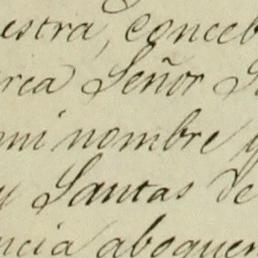 estra, conceb
rea Señor S
mi nombre y
y Santas de
ncia aboguen